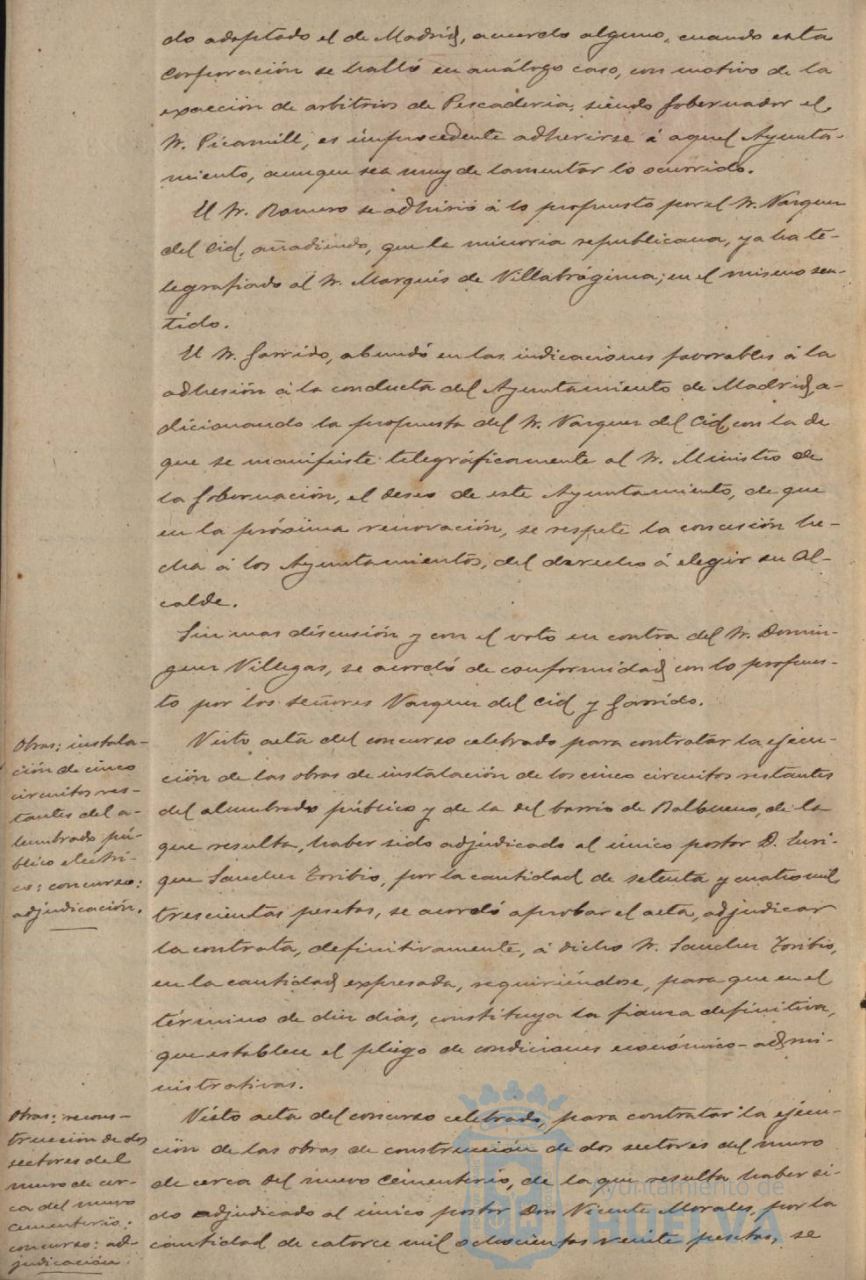 do adoptado el de Madrid, acuerdo alguno, cuando esta
Corporación se halló en análogo caso, con motivo de la
exacción de arbitrios de Pescaderia, siendo Gobernador el
Sr. Picamill, es improcedente adherirse á aquel Ayunta-
miento, aunque sea muy de lamentar lo ocurrido.
El Sr. Romero se adhirió á lo propuesto por el Sr. Vazquez
del Cid, añadiendo, que la minoria republicana, ya ha te-
legrafiado al Sr. Marqués de Villabrágima; en el mismo sen-
tido.
El Sr. Garrido, abundó en las indicaciones favorables á la
adhesión á la conducta del Ayuntamiento de Madrid, a-
dicionando la propuesta del Sr. Vazquez del Cid, con la de
que se manifieste telegráficamente al Sr. Ministro de
la Gobernación, el deseo de este Ayuntamiento, de que
en la próxima renovación, se respete la concesión he-
cha á los Ayuntamientos, del derecho á elegir su Al-
calde.
Sin mas discusión y con el voto en contra del Sr. Domin-
guez Villegas, se acordó de conformidad con lo propues-
to por los señores Vazquez del Cid y Garrido.
Obras; instala-
ción de cinco
circuitos res-
tantes del a-
lumbrado pú-
blico electri-
co: concurso:
adjudicación.
Visto acta del concurso celebrado para contratar la ejecu-
ción de las obras de instalación de los cinco circuitos restantes
del alumbrado público y de la del barrio de Balbueno, de la
que resulta, haber sido adjudicado al único postor D. Enri-
que Sanchez Toribio, por la cantidad de setenta y cuatro mil
trescientas pesetas, se acordó aprobar el acta, adjudicar
la contrata, definitivamente, á dicho Sr. Sanchez Toribio,
en la cantidad expresada, requiriéndose, para que en el
término de diez dias, constituya la fianza definitiva,
que establece el pliego de condiciones económico-admi-
nistrativas.
Obras; recons-
trucción de dos
sectores del
muro de cer-
ca del nuevo
cementerio;
concurso: ad-
judicación:
Visto acta del concurso celebrado, para contratar la ejecu-
ción de las obras de construcción de dos sectores del muro
de cerca del nuevo Cementerio, de la que resulta haber si-
do adjudicado al único postor Don Vicente Morales, por la
cantidad de catorce mil ochocientas veinte pesetas, se
Ayuntamiento de
HUELVA